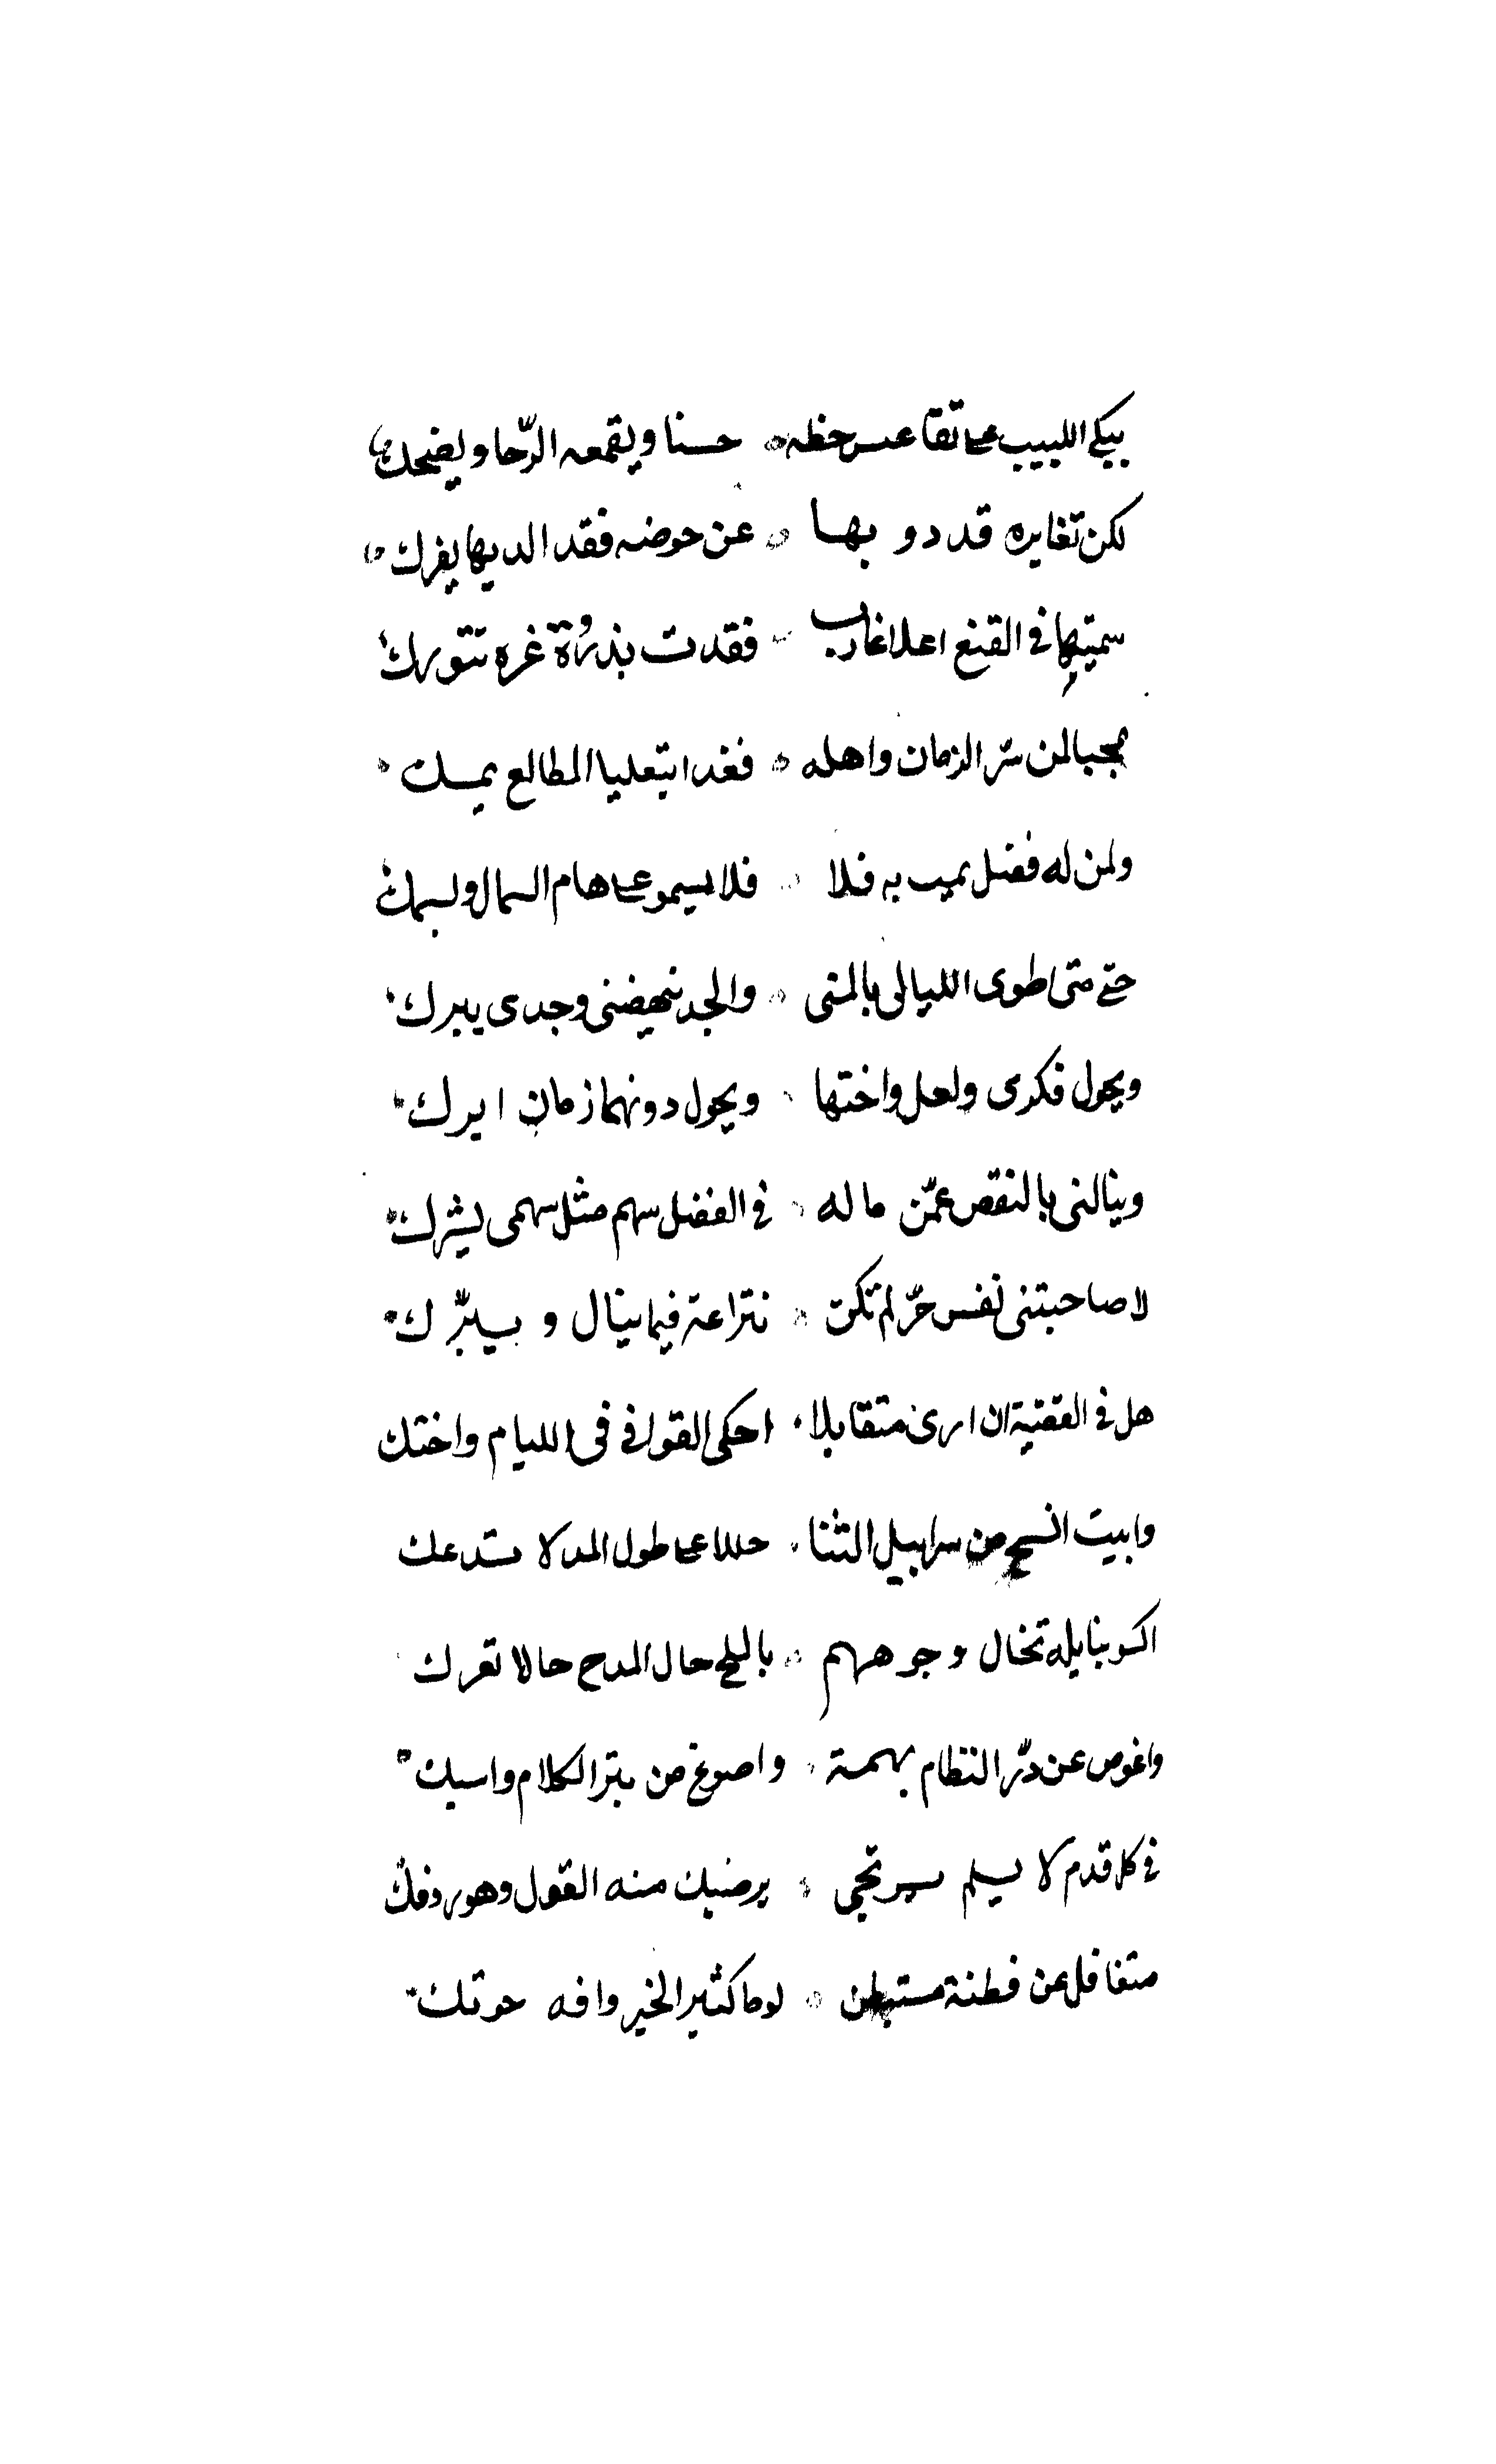 يبكى اللبيب على تقاعس حظه حسنا ويقمعه الرّحا ويضحك
لكن تغايره قد دو بها عن حوضه فقد الديها يفرك
سميتها فى القنع اعلا غارب فقدت بذروة غره تتورك
عجبا لمن سرّ الزمان واهله فغدا
ولمن له فضل به فلا فلا يسيمو على هام السمال
حتى متى اطوى الليالى بالمنى والجد ينهضنى وجدى يبرك
ويحول فكرى ولعل واختها ويحول دونهما زمان ابرك
وينالنى بالنقص عمّن ماله فى الفضل سهم مثل سهمى يشرك
لا صاحبتنى نفس حرّ لم تكن نتراعة فيما ينال و
هل فى القضية ان ارى متقابلا احكى القوافى فى الليام واختك
وابيت انسج من سرابيل الثنا حللا على طول المدلا
اكسو بنايله تخال وجوههم حال المدح حالا تعرك
واغوص عن درّ النظام بهمة واصوغ من تبر الكلام واسبك
فى كل قدم لا يسلم يرتجى يرضيك منه القول وهو
متغافل عن فطنة مستبطن لوما كثير الخير وافه